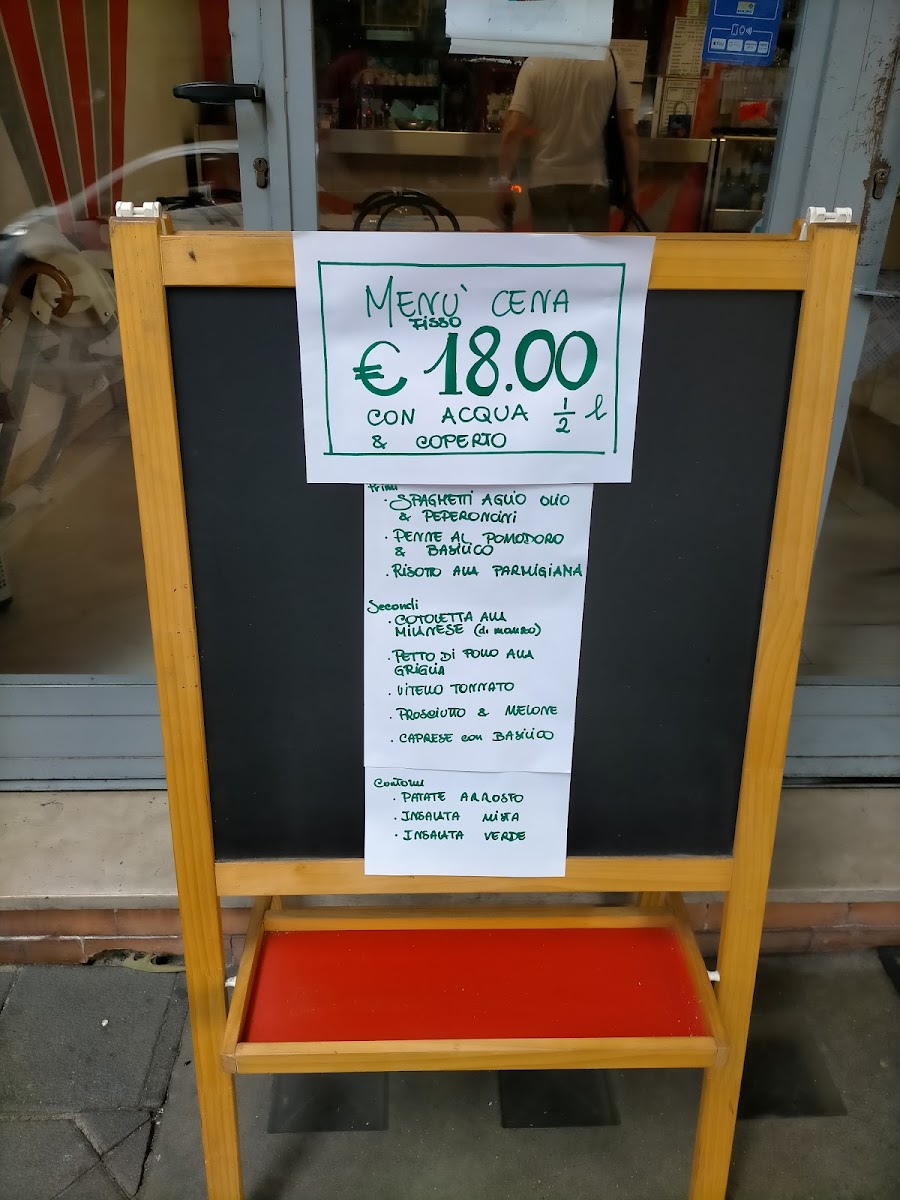 MENU' CENA
FISSO
€ 18.00
CON ACQUA 1/2 l
& COPERTO
Primi
· SPAGHETTI AGLIO OLIO
& PEPERONCINI
· PENNE AL POMODORO
& BASILICO
· RISOTTO ALLA PARMIGIANA
Secondi
· COTOLETTA ALLA
MILANESE (di manzo)
· PETTO DI POLLO ALLA
GRIGLIA
· VITELLO TONNATO
· PROSCIUTTO & MELONE
· CAPRESE con BASILICO
Contorni
· PATATE ARROSTO
· INSALATA MISTA
· INSALATA VERDE